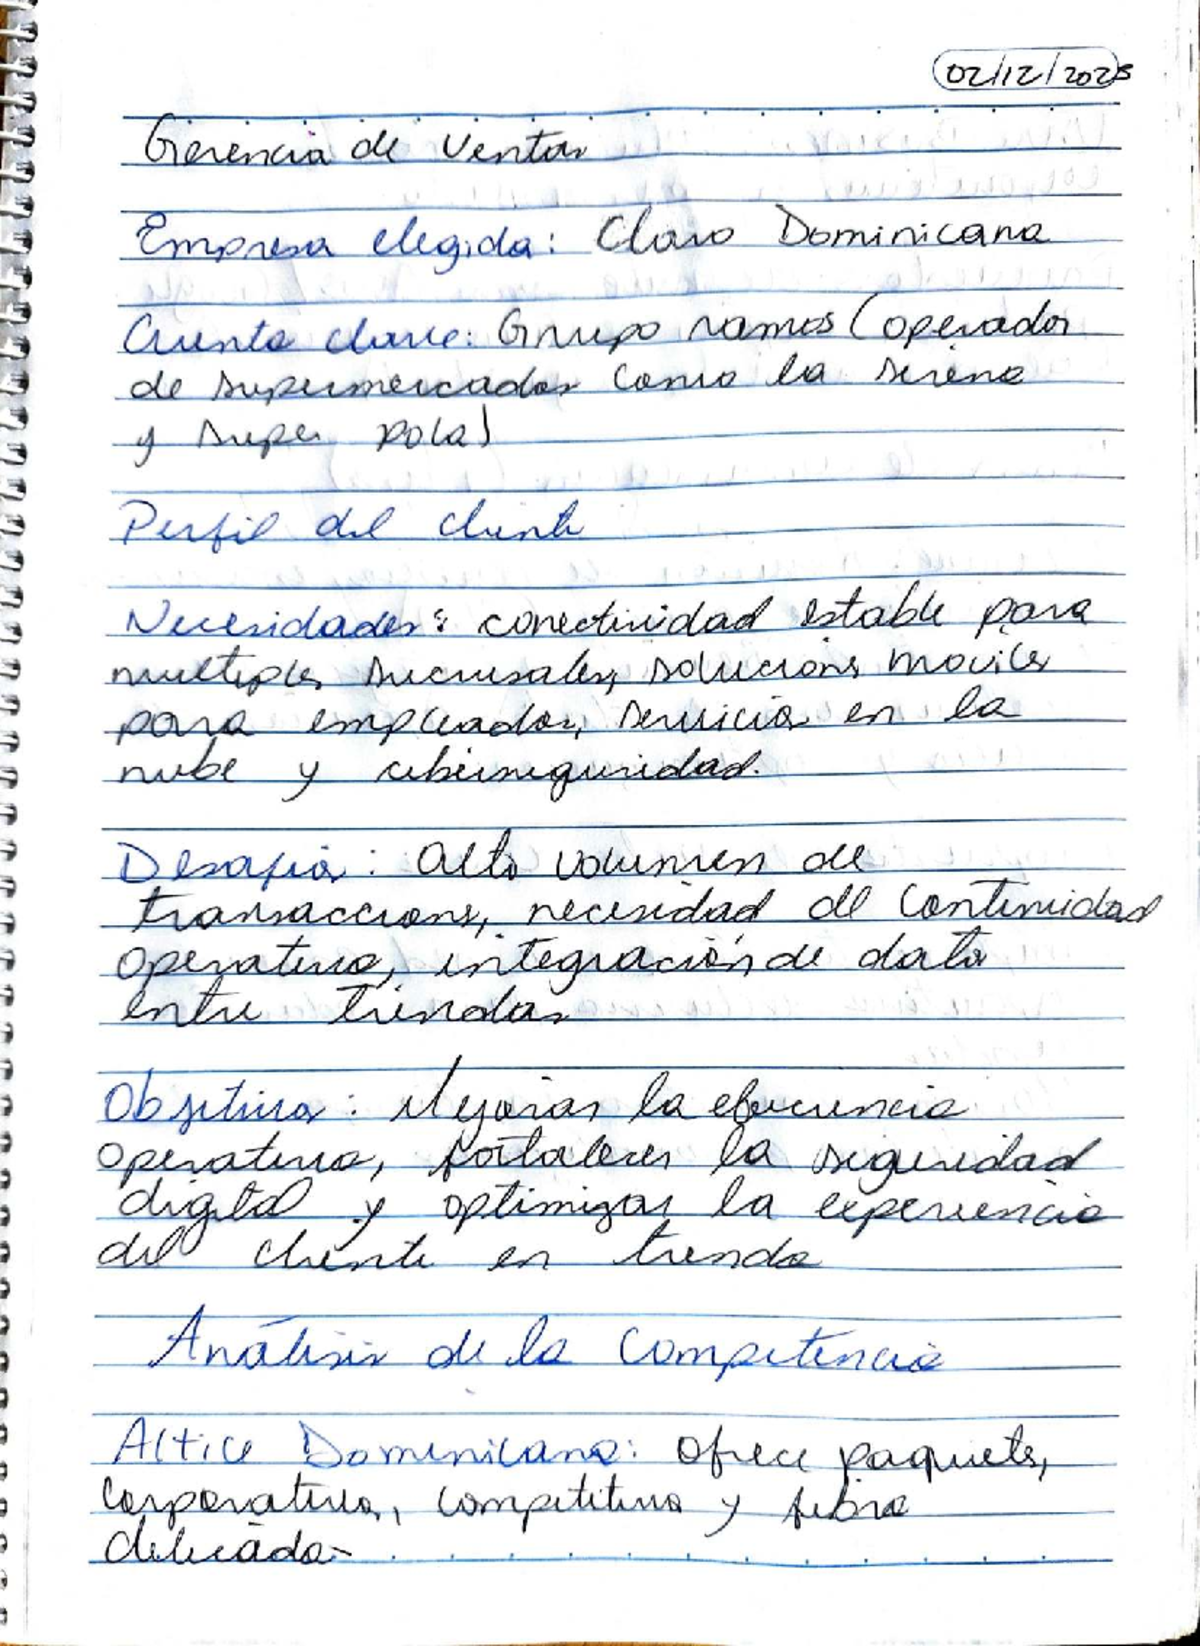 02/12/2025
Gerencia de Ventas
Empresa elegida: Claro Dominicana
Cuenta clave: Grupo ramos (operador
de supermercados como la sirena
y super pola)
Perfil del cliente
Necesidades: conectividad estable para
multiples sucursales, soluciones moviles
para empleados, servicios en la
nube y ciberseguridad.
Desafios: alto volumen de
transacciones, necesidad de continuidad
operativa, integración de datos
entre tiendas
Objetivos: Mejorar la eficiencia
operativa, fortalecer la seguridad
digital y optimizar la experiencia
del cliente en tienda
Análisis de la Competencia
Altice Dominicana: ofrece paquetes,
corporativos, competitivos y fibra
dedicada-